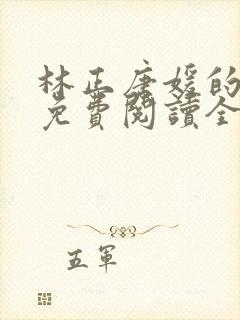 林正唐媛的
免費閱讀全
五軍